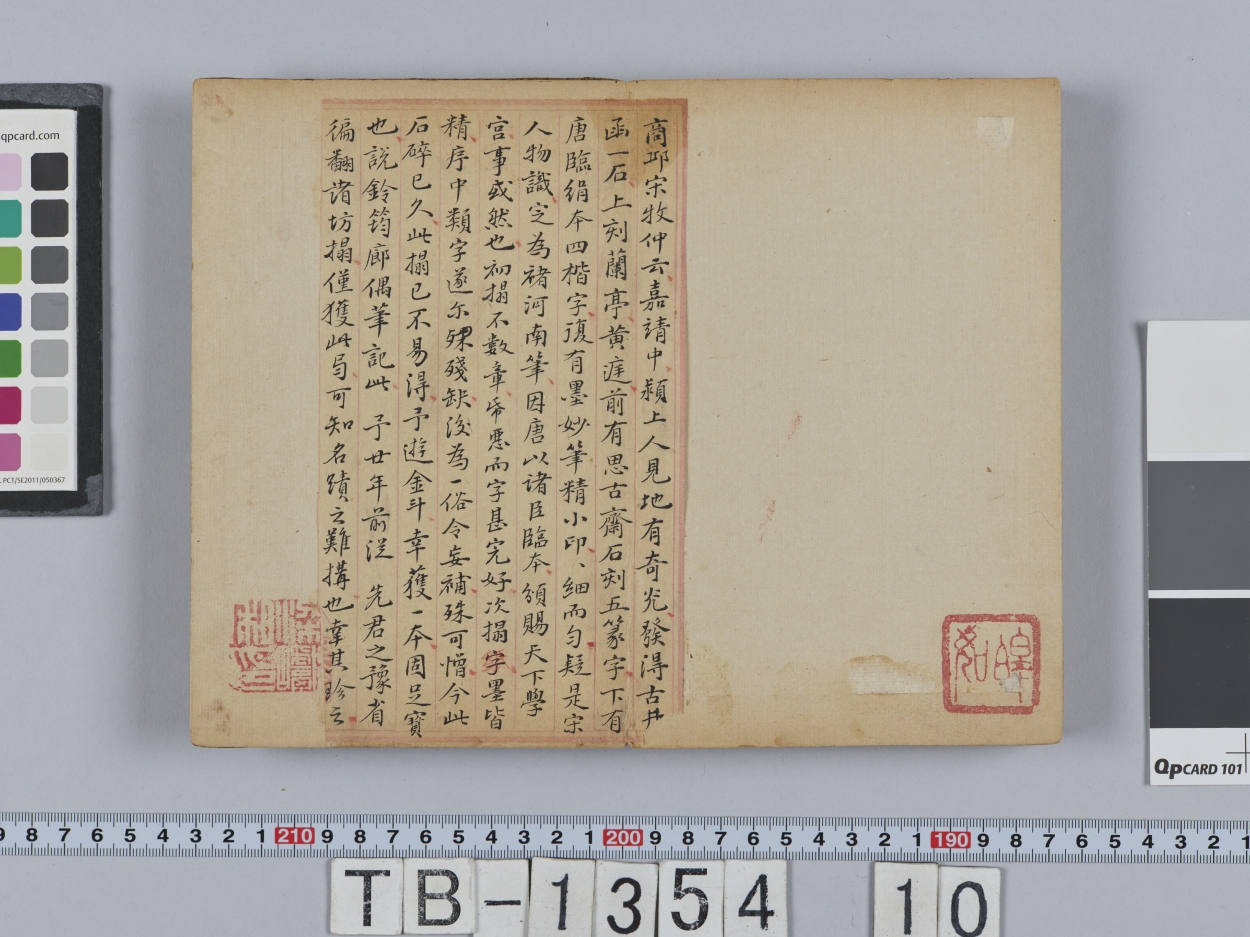 商邱宋牧仲云嘉靖中潁上人見地有奇光發得古井
函一石上刻蘭亭黃庭前有思古齋石刻五篆字下有
唐臨絹本四楷字復有墨妙筆精小印、細而勻疑是宋
人物識定為褚河南筆因唐以諸臣臨本頒賜天下學
宮事或然也初搨不數章帋惡而字甚完好次搨字墨皆
精序中類字遂尓殊殘缺後為一俗令妄補殊可憎今此
石碎已久此搨已不易得予遊金斗幸獲一本固足寶
也說鈴筠廊偶筆記此 予廿年前從 先君之豫省
徧翻諸坊搨僅獲此局可知名蹟之難搆也幸其珍之
qpcard.com
PCT/SE2011/050367
QPCARD 101
9 8 7 6 5 4 3 2 1 210 9 8 7 6 5 4 3 2 1 200 9 8 7 6 5 4 3 2 1 190 9 8 7 6 5 4 3 2 1
TB-1354 10